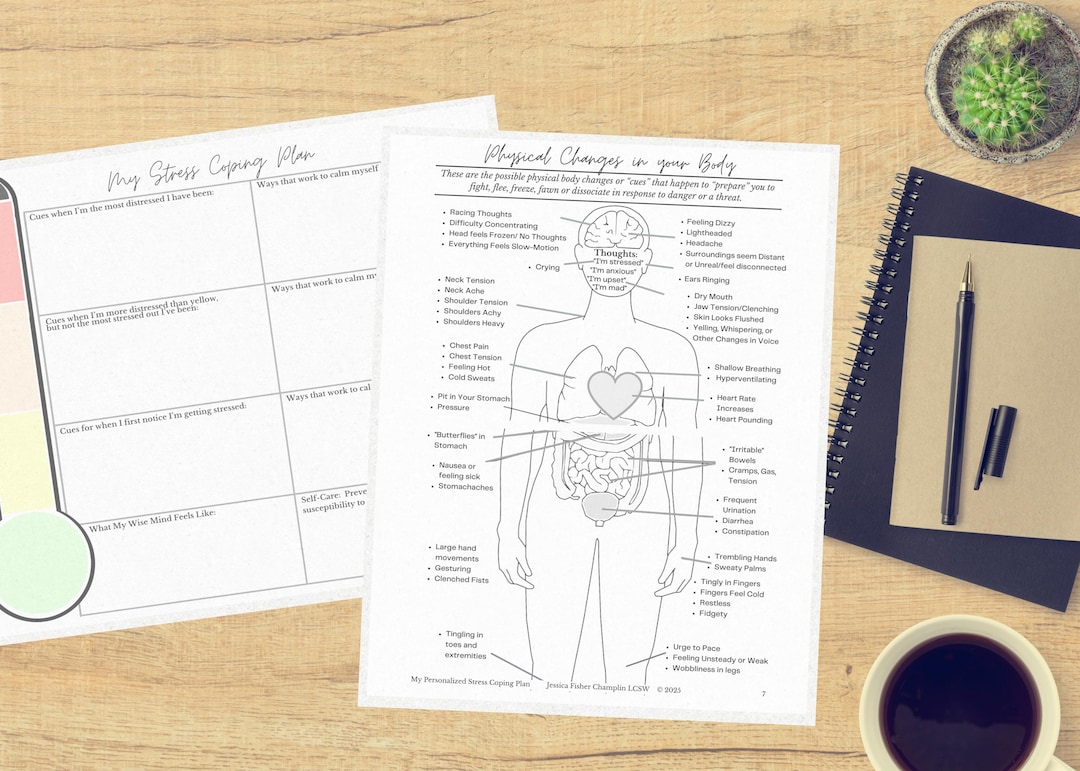 My Stress Coping Plan
Cues when I'm the most distressed I have been:
Ways that work to calm myself
Cues when I'm more distressed than yellow,
but not the most stressed out I've been:
Ways that work to calm
Cues for when I first notice I'm getting stressed:
Ways that work to
What My Wise Mind Feels Like:
Self-Care:
susceptibility to
Physical Changes in your Body
These are the possible physical body changes or "cues" that happen to "prepare" you to
fight, flee, freeze, fawn or dissociate in response to danger or a threat.
• Racing Thoughts
• Difficulty Concentrating
• Head feels Frozen/ No Thoughts
• Everything Feels Slow-Motion
• Crying
• Neck Tension
• Neck Ache
• Shoulder Tension
• Shoulders Achy
• Shoulders Heavy
• Chest Pain
• Chest Tension
• Feeling Hot
• Cold Sweats
• Pit in Your Stomach
• Pressure
• "Butterflies" in
Stomach
• Nausea or
feeling sick
• Stomachaches
• Large hand
movements
• Gesturing
• Clenched Fists
• Tingling in
toes and
extremities
Thoughts:
"I'm stressed"
"I'm anxious"
"I'm upset"
"I'm mad"
• Feeling Dizzy
• Lightheaded
• Headache
• Surroundings seem Distant
or Unreal/feel disconnected
• Ears Ringing
• Dry Mouth
• Jaw Tension/Clenching
• Skin Looks Flushed
• Yelling, Whispering, or
Other Changes in Voice
• Shallow Breathing
• Hyperventilating
• Heart Rate
Increases
• Heart Pounding
• "Irritable"
Bowels
• Cramps, Gas,
Tension
• Frequent
Urination
• Diarrhea
• Constipation
• Trembling Hands
• Sweaty Palms
• Tingly in Fingers
• Fingers Feel Cold
• Restless
• Fidgety
• Urge to Pace
• Feeling Unsteady or Weak
• Wobbliness in legs
My Personalized Stress Coping Plan Jessica Fisher Champlin LCSW © 2025
7